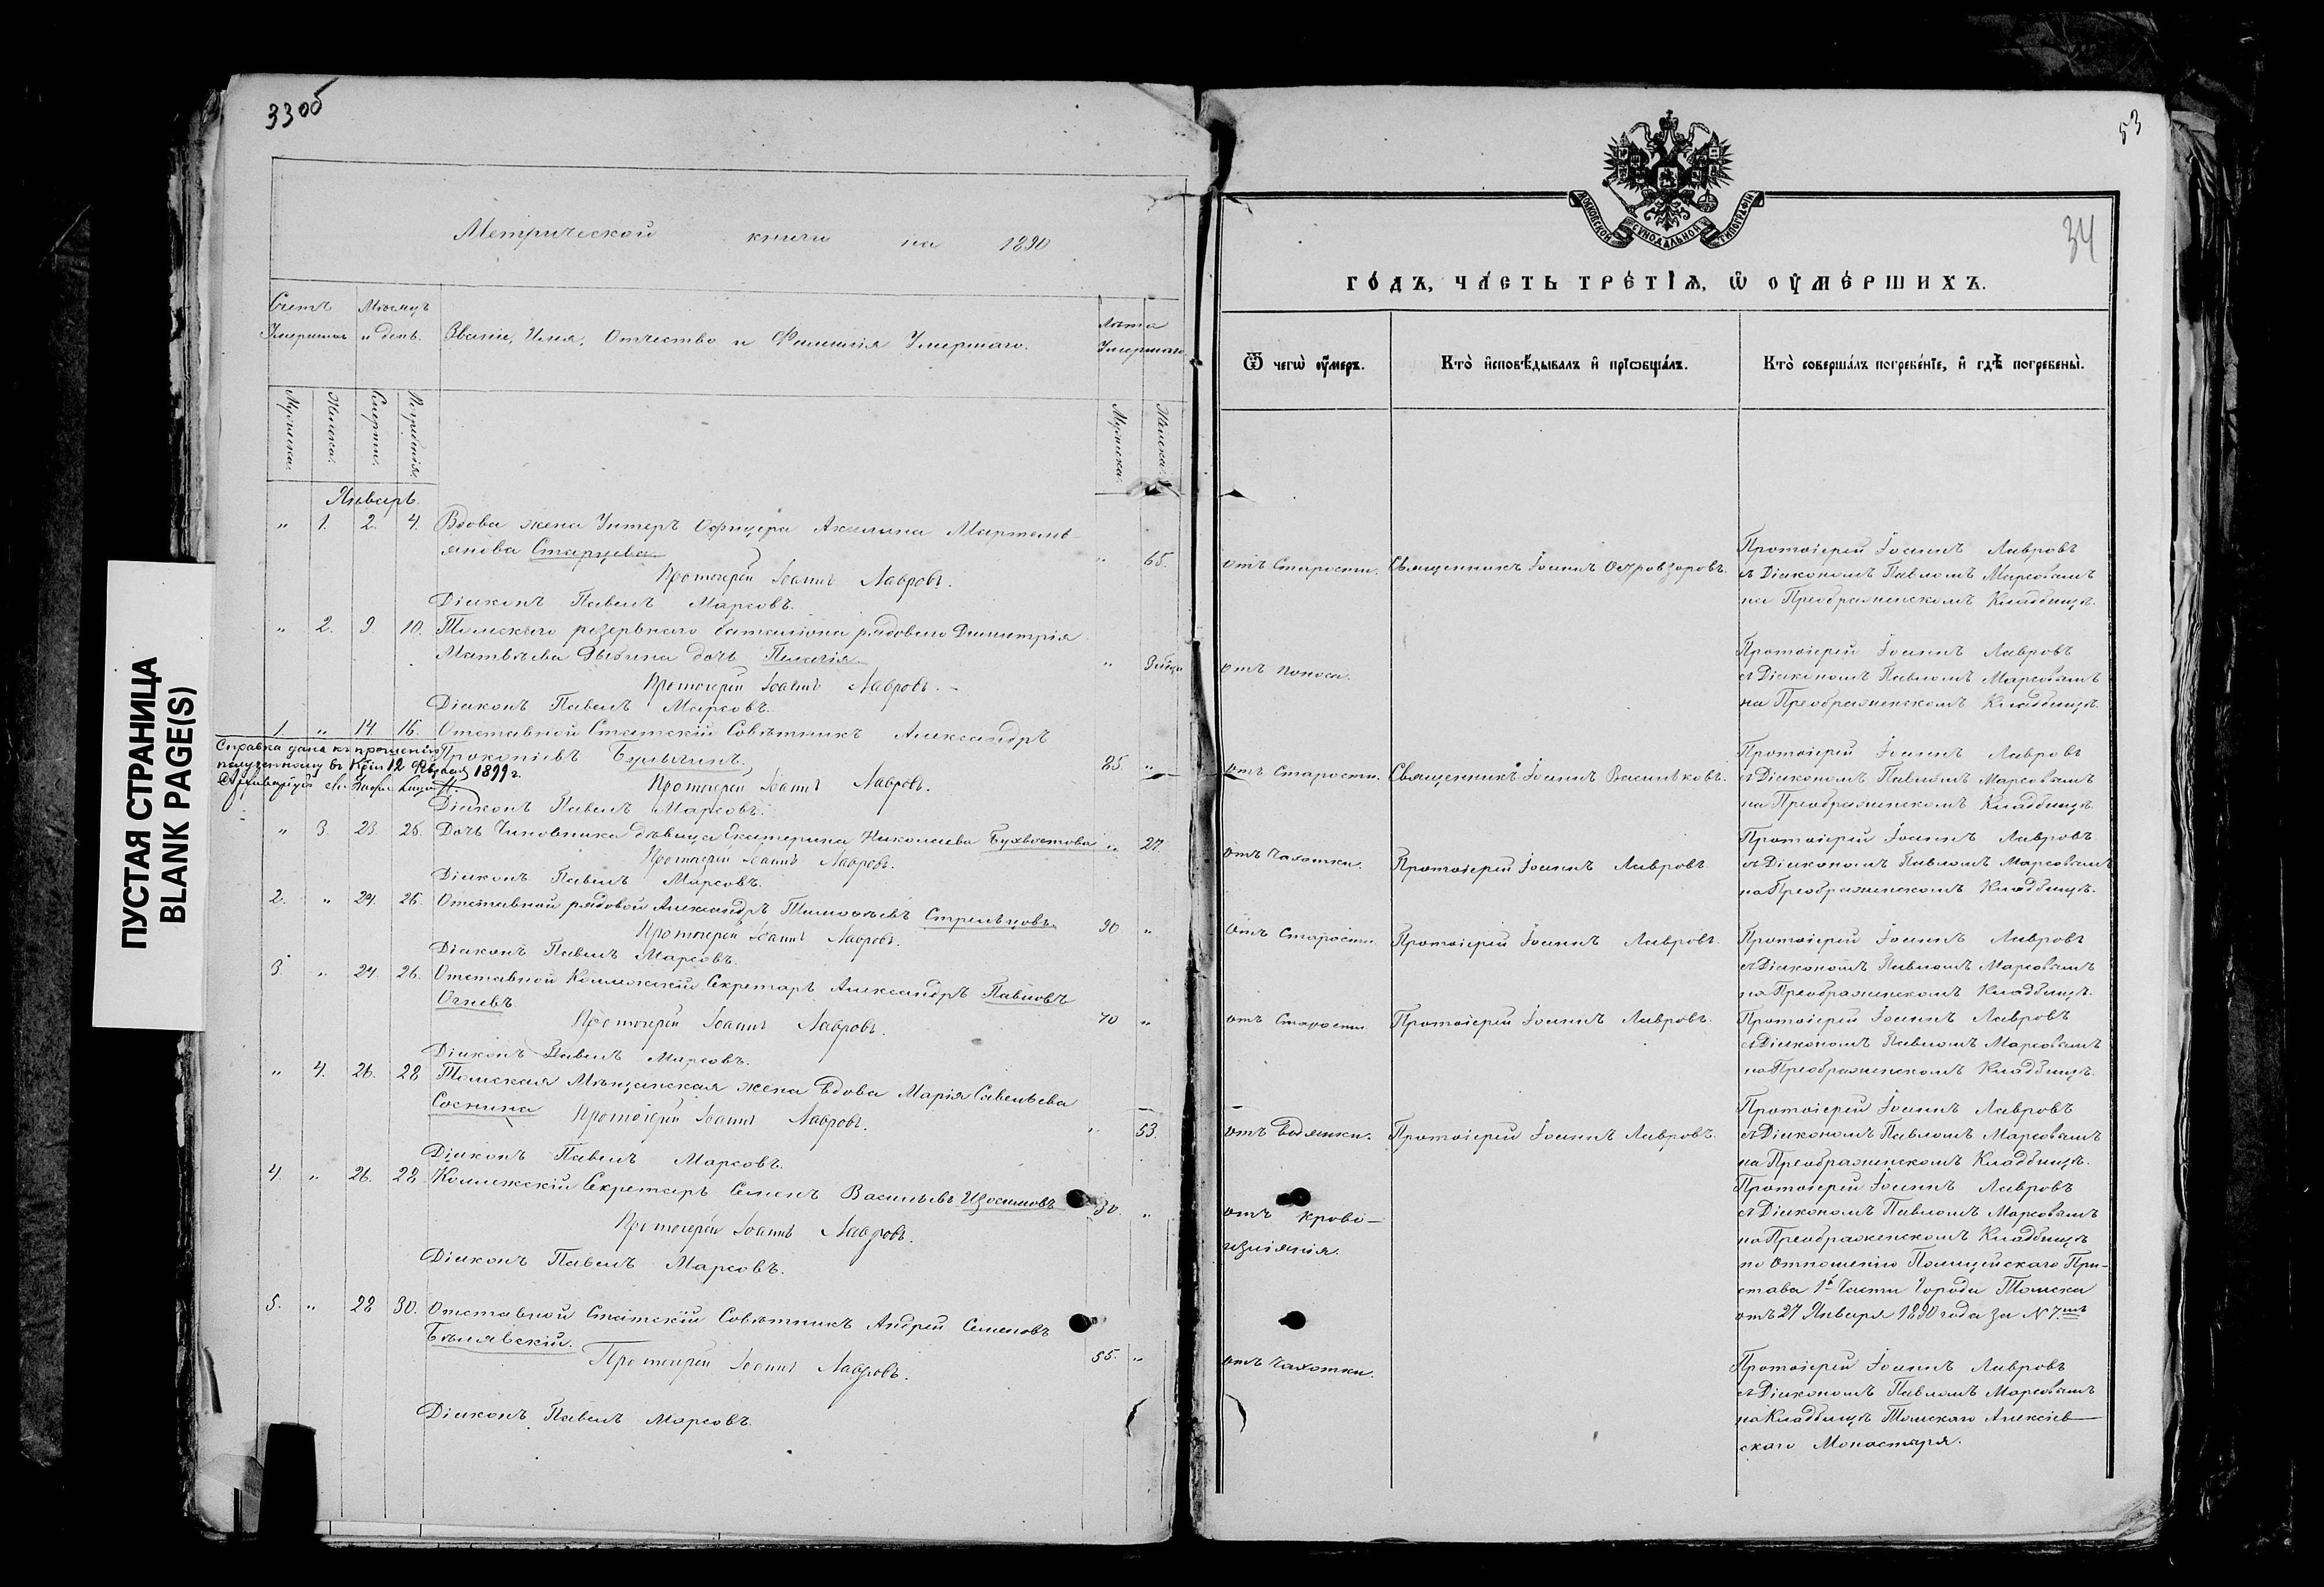 33об
Метрической книги на 1890
Счетъ Умершихъ
Мѣсяцъ и день.
Званіе, Имя, Отчество и Фамилія Умершаго.
Лѣта Умершаго
Мужеска.
Женска.
Смерти.
Погребенія.
Мужеска.
Женска.
Январь.
" 1. 2. 4. Вдова жена Унтеръ Офицера Акилина Мартемь-
янова Старцева " 65.
Протоіерей Іоаннъ Лавровъ.
Діаконъ Павелъ Марсовъ.
" 2. 9. 10. Томскаго резервнаго баталіона рядоваго Димитрія
Матвѣева Зыбина дочь Пелагія "
Протоіерей Іоаннъ Лавровъ.
Діаконъ Павелъ Марсовъ.
1. " 14. 16. Отставной Статскій Совѣтникъ Александръ
Прокопіевъ Булычинъ. 85 "
Справка дана къ прошенію
полученному въ Кріи 12 Февраля 1899 г.
Протоіерей Іоаннъ Лавровъ.
Діаконъ Павелъ Марсовъ.
" 3. 23. 25. Дочь Чиновника дѣвица Екатерина Николаева Бухвостова " 27.
Протоіерей Іоаннъ Лавровъ.
Діаконъ Павелъ Марсовъ.
2. " 24. 26. Отставной рядовой Александръ Тимофѣевъ Стрѣльцовъ. 90 "
Протоіерей Іоаннъ Лавровъ.
Діаконъ Павелъ Марсовъ.
3. " 24. 26. Отставной Коллежскій Секретарь Александръ Павловъ
Огневъ 70 "
Протоіерей Іоаннъ Лавровъ.
Діаконъ Павелъ Марсовъ.
" 4. 26. 28 Томская Мѣщанская жена вдова Марія Савельева
Соснина " 53.
Протоіерей Іоаннъ Лавровъ.
Діаконъ Павелъ Марсовъ.
4. " 26. 28 Коллежскій Секретарь Семенъ Васильевъ Изосимовъ 30. "
Протоіерей Іоаннъ Лавровъ.
Діаконъ Павелъ Марсовъ.
5. " 28 30. Отставной Статскій Совѣтникъ Андрей Семеновъ
Бѣлявскій. 55. "
Протоіерей Іоаннъ Лавровъ.
Діаконъ Павелъ Марсовъ.
ПУСТАЯ СТРАНИЦА
BLANK PAGE(S)
53
34
МОСКОВСКОЙ СУНОДАЛЬНОЙ ТИПОГРАФІИ
ГО́ДЪ, ЧА́СТЬ ТРЕ́ТІѦ, Ѡ҆ ОУ҆МЕ́РШИХЪ.
Ѿ чегѡ̀ оу҆́меръ.
Кто̀ и҆сповѣ́дывалъ и҆ прїѡбща́лъ.
Кто̀ соверша́лъ погребе́нїе, и҆ гдѣ̀ погребены̀.
отъ Старости. Священникъ Іоаннъ Островзоровъ. Протоіерей Іоаннъ Лавровъ
съ Діакономъ Павломъ Марсовымъ
на Преображенскомъ Кладбищѣ.
отъ поноса. Протоіерей Іоаннъ Лавровъ
съ Діакономъ Павломъ Марсовымъ
на Преображенскомъ Кладбищѣ.
отъ Старости. Священникъ Іоаннъ Васильковъ. Протоіерей Іоаннъ Лавровъ
съ Діакономъ Павломъ Марсовымъ
на Преображенскомъ Кладбищѣ
отъ Чахотки. Протоіерей Іоаннъ Лавровъ Протоіерей Іоаннъ Лавровъ
съ Діакономъ Павломъ Марсовымъ
на Преображенскомъ Кладбищѣ.
отъ Старости. Протоіерей Іоаннъ Лавровъ. Протоіерей Іоаннъ Лавровъ
съ Діакономъ Павломъ Марсовымъ
на Преображенскомъ Кладбищѣ.
отъ Старости. Протоіерей Іоаннъ Лавровъ. Протоіерей Іоаннъ Лавровъ
съ Діакономъ Павломъ Марсовымъ
на Преображенскомъ Кладбищѣ.
отъ Водянки. Протоіерей Іоаннъ Лавровъ. Протоіерей Іоаннъ Лавровъ
съ Діакономъ Павломъ Марсовымъ
на Преображенскомъ Кладбищѣ.
отъ крово-
изліянія.
Протоіерей Іоаннъ Лавровъ
съ Діакономъ Павломъ Марсовымъ
на Преображенскомъ Кладбищѣ
по Отношенію Полицейскаго При-
става 1й Части города Томска
отъ 27 Января 1890 года за N 7.мъ
отъ Чахотки. Протоіерей Іоаннъ Лавровъ
съ Діакономъ Павломъ Марсовымъ
на Кладбищѣ Томскаго Алексіев-
скаго Монастыря.